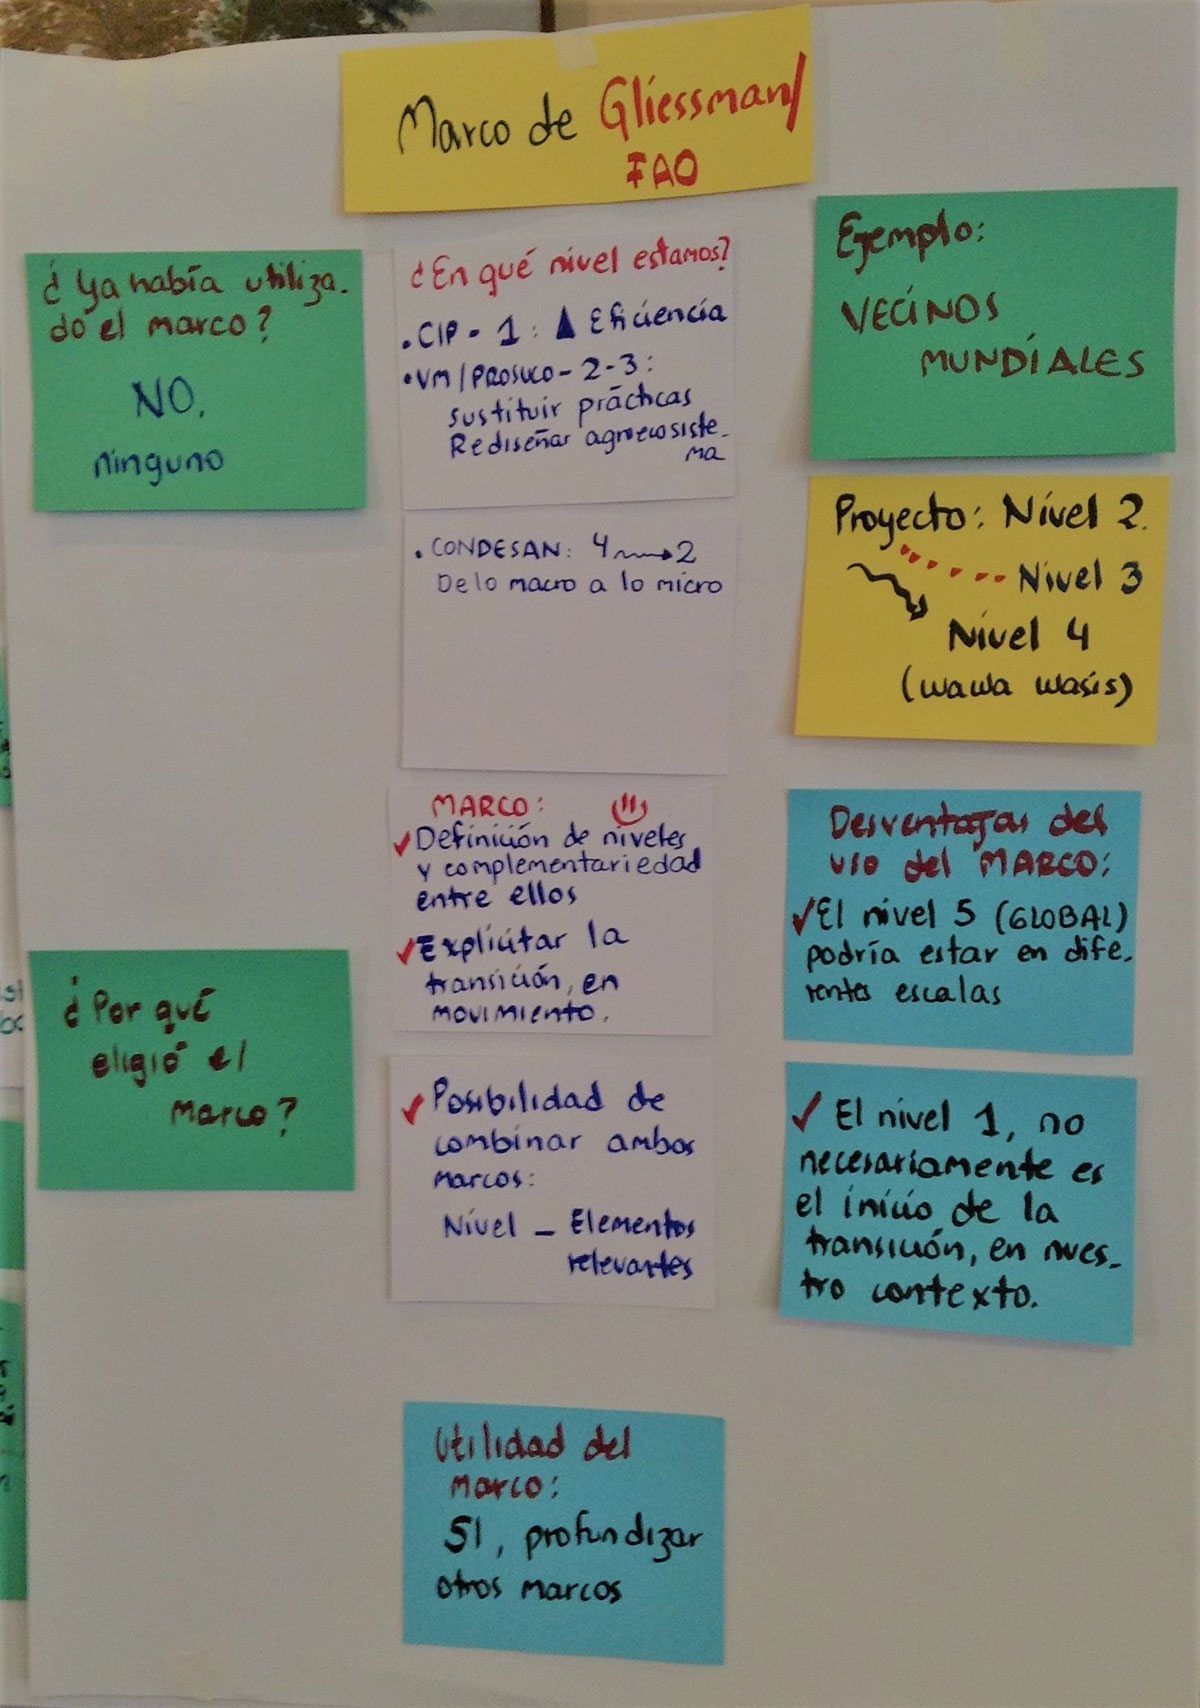 Marco de Gliessman/
FAO
¿Ya había utiliza-
do el marco?
NO.
ninguno
¿En qué nivel estamos?
• CIP - 1: ▲ Eficiencia
• VM/PROSUCO - 2-3:
sustituir prácticas
Rediseñar agroecosiste-
ma
• CONDESAN: 4 → 2
De lo macro a lo micro
Ejemplo:
VECINOS
MUNDIALES
Proyecto: Nivel 2.
Nivel 3
Nivel 4
(wawa wasis)
¿Por qué
eligió el
marco?
MARCO:
✓ Definición de niveles
y complementariedad
entre ellos
✓ Explicitar la
transición, en
movimiento.
✓ Posibilidad de
combinar ambos
marcos:
Nivel - Elementos
relevantes
Desventajas del
uso del MARCO:
✓ El nivel 5 (GLOBAL)
podría estar en dife-
rentes escalas
✓ El nivel 1, no
necesariamente es
el inicio de la
transición, en nues-
tro contexto.
Utilidad del
marco:
SI, profundizar
otros marcos